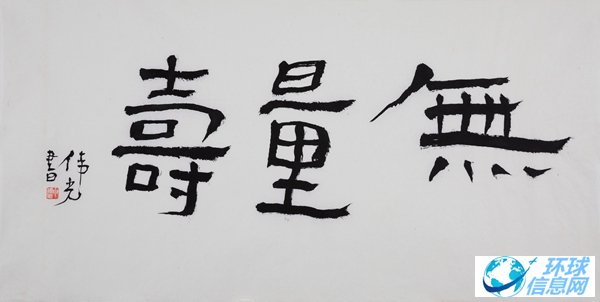 無量壽
伟光
書
环球
信息网